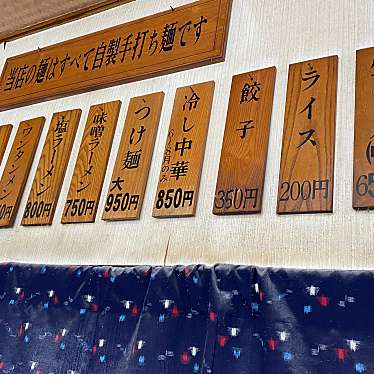 当店の麺はすべて自製手打ち麺です
ライス
200円
餃子
350円
冷し中華
850円
つけ麺
大
950円
味噌ラーメン
750円
塩ラーメン
800円
ワンタン